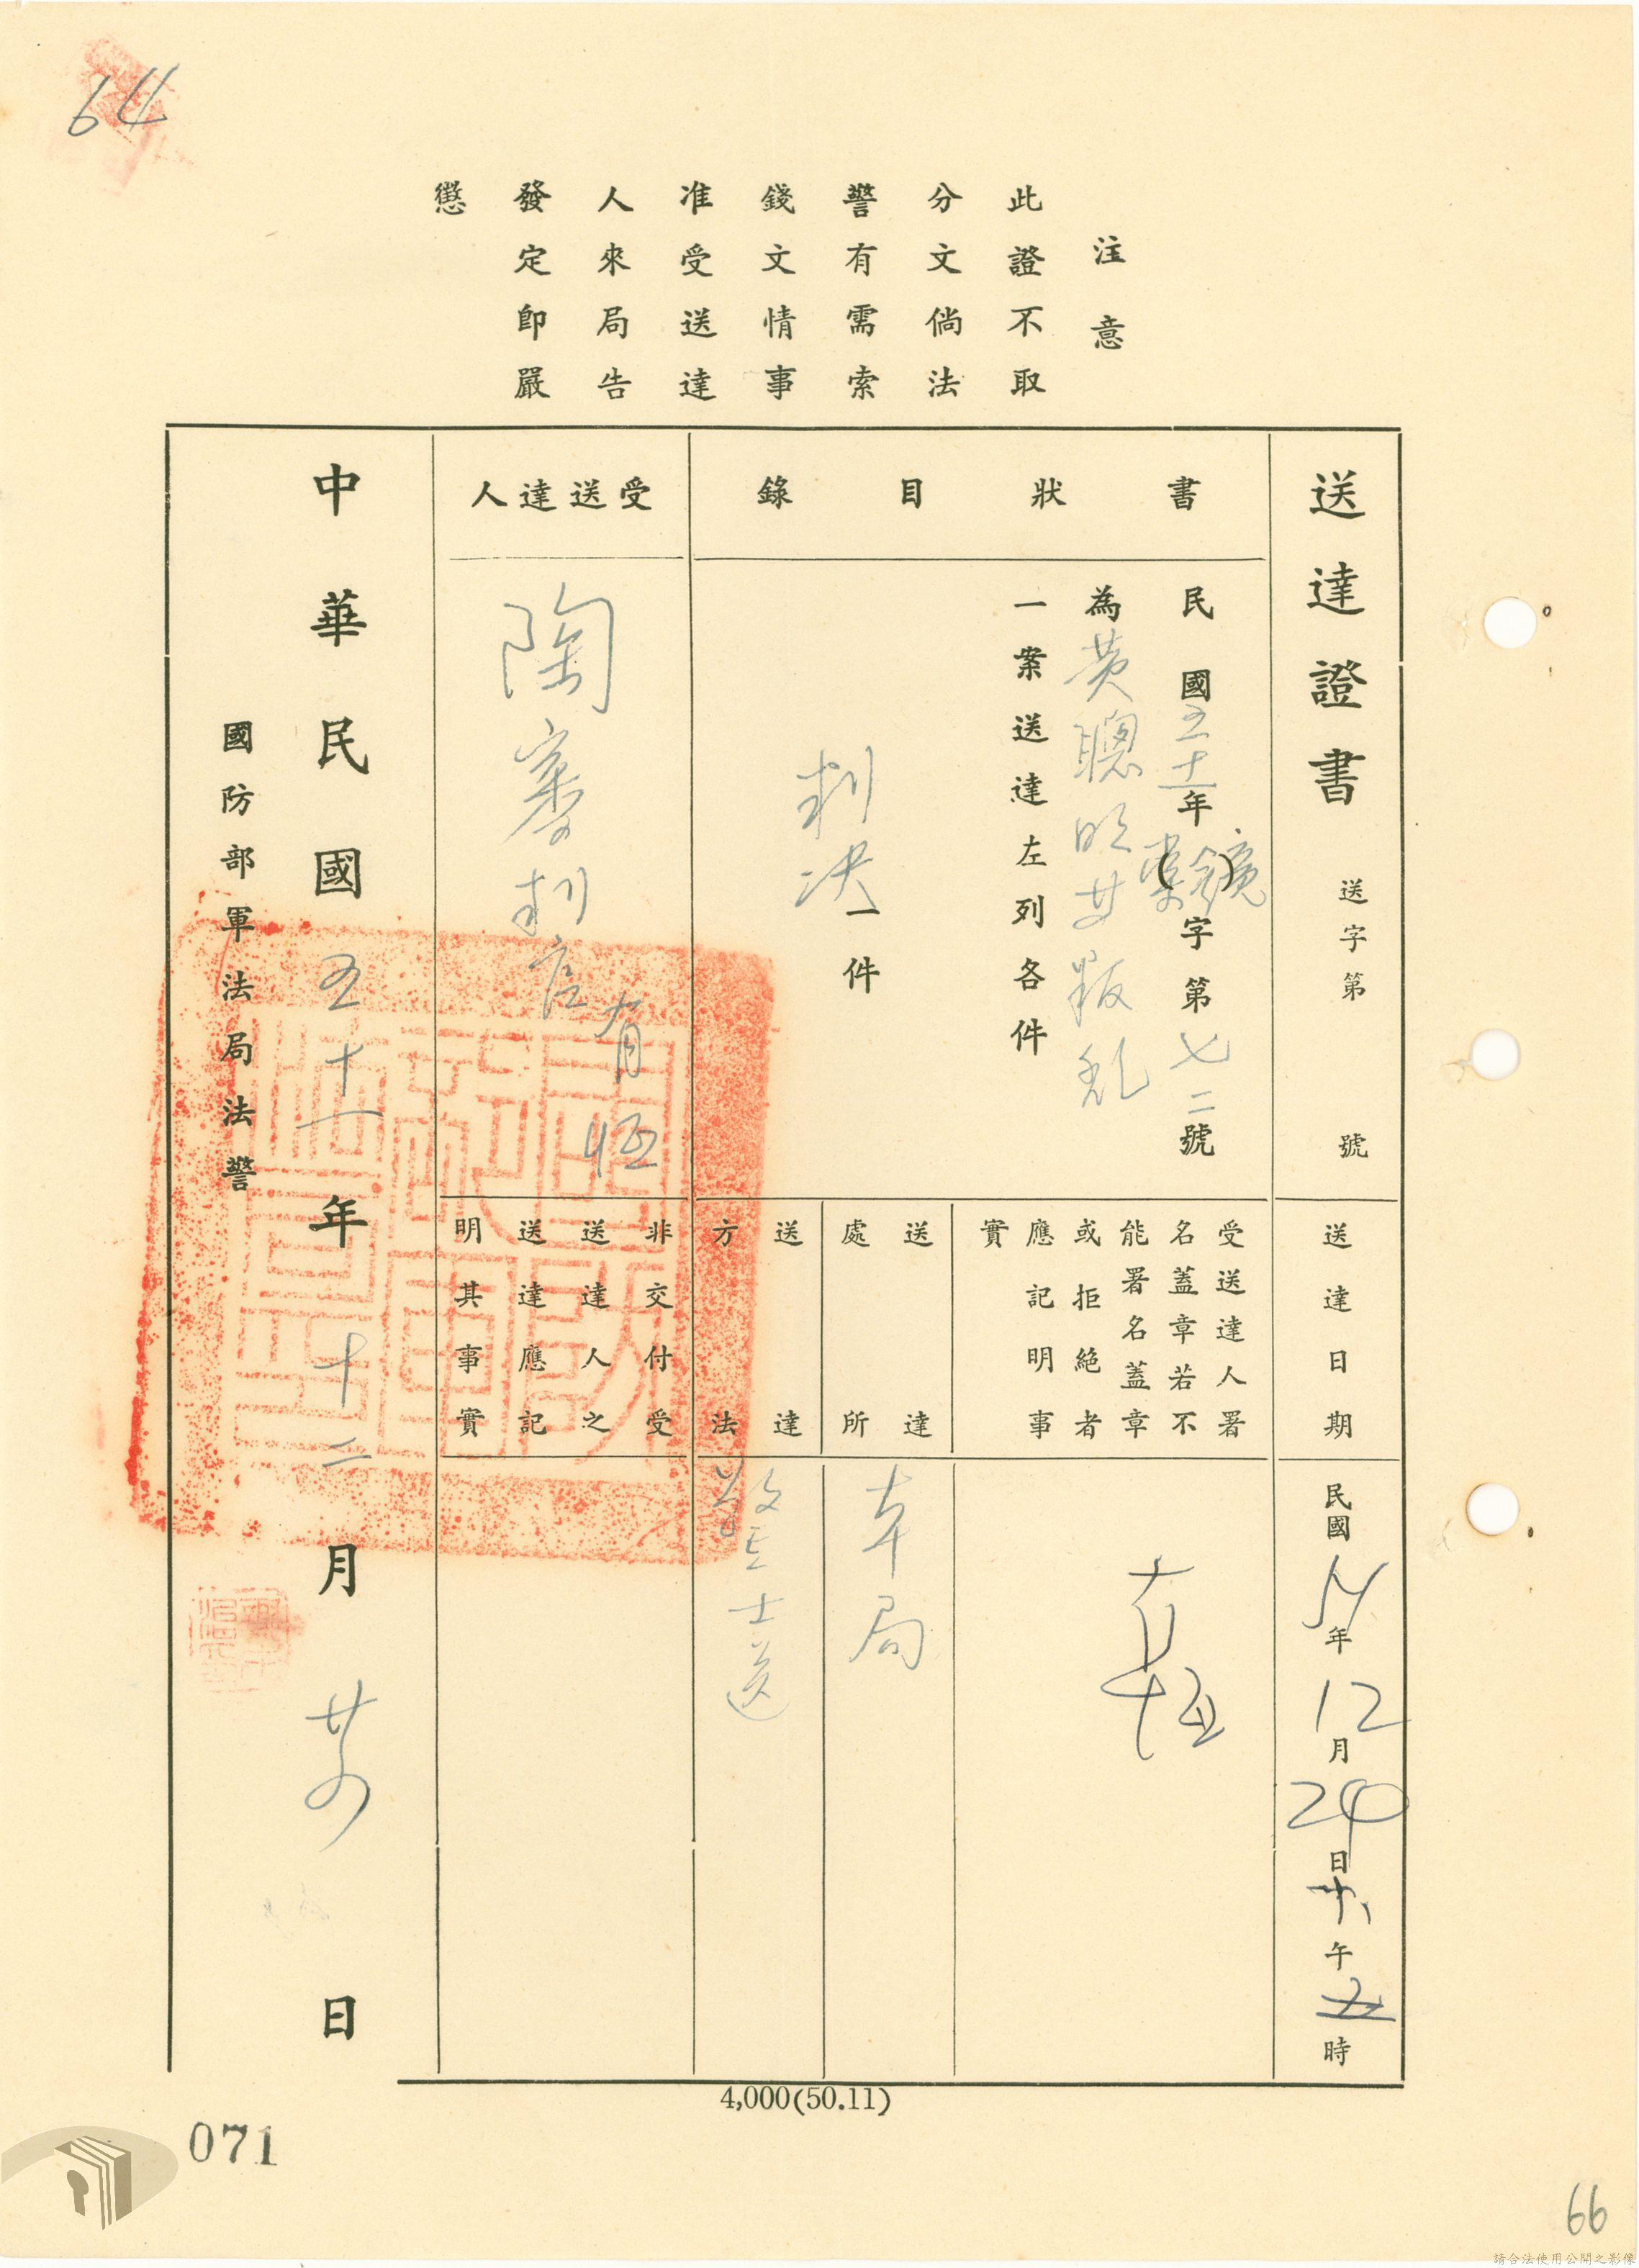 64
注意
此證不取
分文倘法
警有需索
錢文情事
准受送達
人來局告
發定即嚴
懲
送達證書 送字第 號
書狀目錄
民國五十一年(棠鏡)字第七二號
為黃聰明等叛亂
一案送達左列各件
判決一件
受送達人
陶審判官有恆
送達日期
民國51年12月24日下午五時
受送達人署
名蓋章若不
能署名蓋章
或拒絕者
應記明事
實
有恆
送達
處所
本局
送達
方法
送
非交付受
送達人之
送達應記
明其事實
中華民國五十一年十二月廿四日
國防部軍法局法警
4,000(50.11)
071
66
請合法使用公開之影像